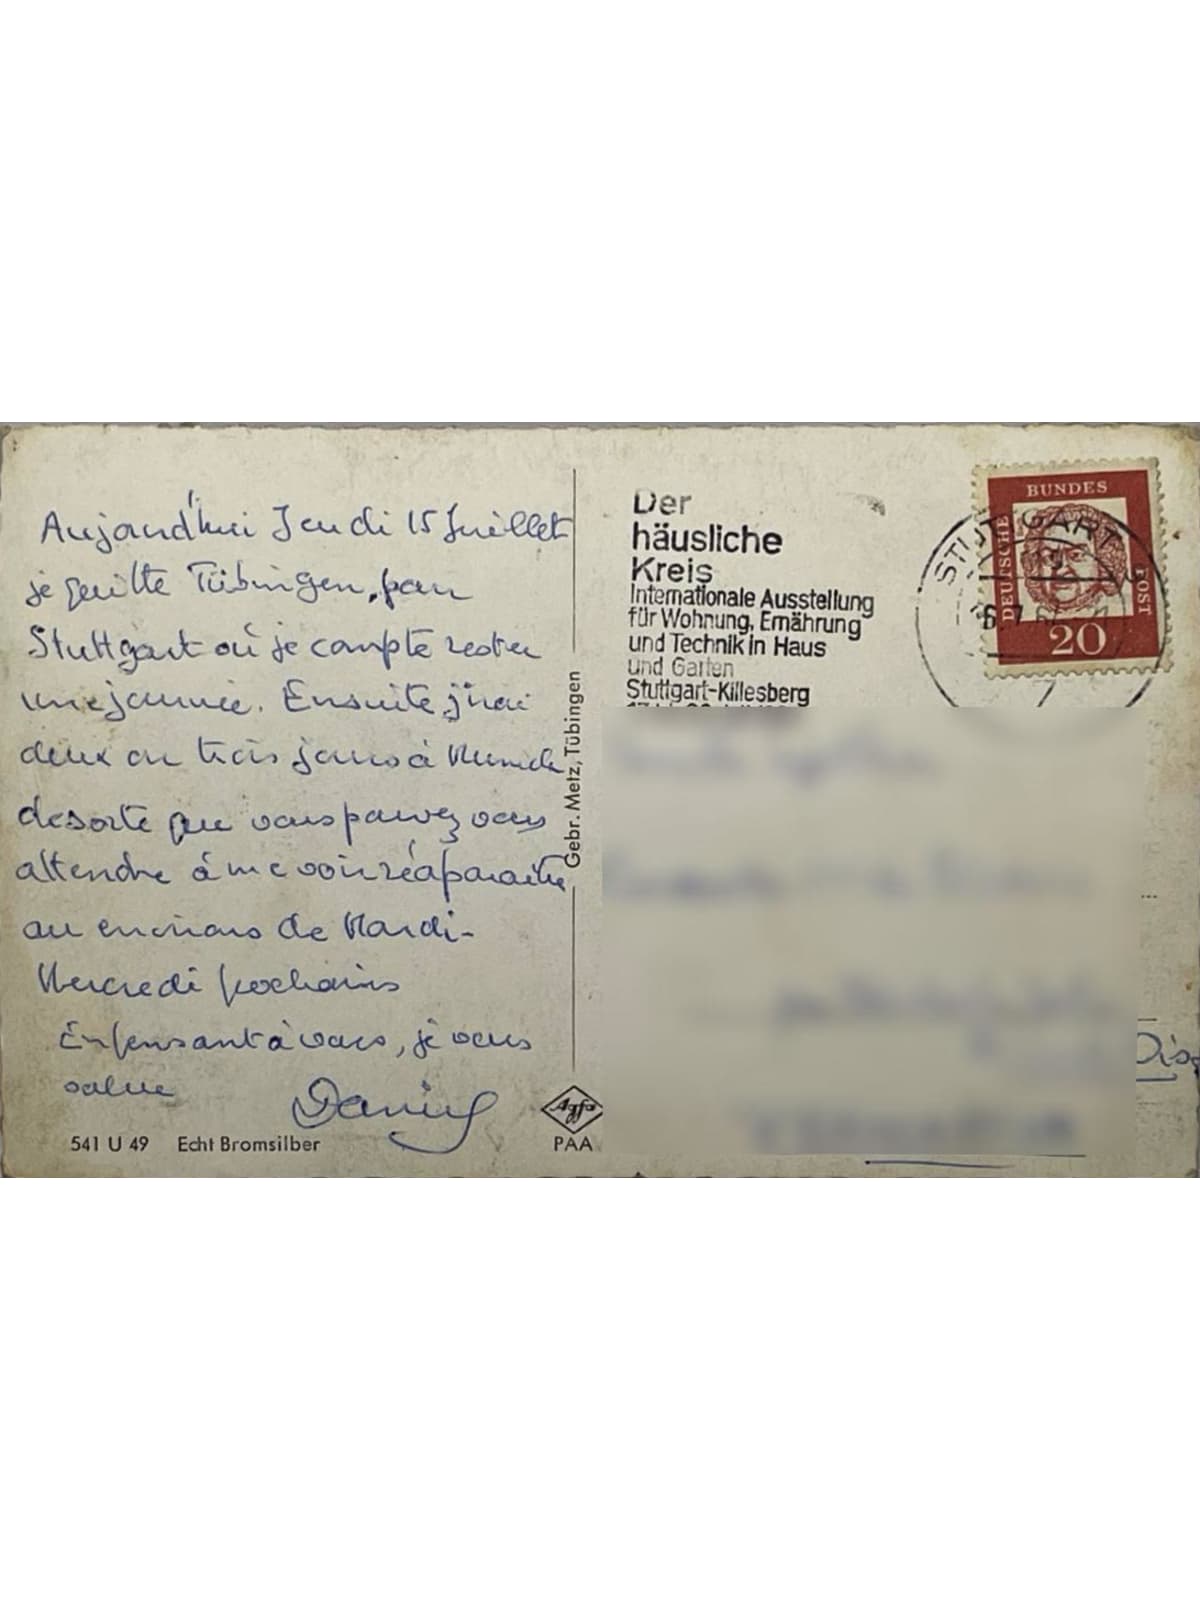 Aujourd'hui Jeudi 15 Juillet
je quitte Tübingen, pour
Stuttgart où je compte rester
une journée. Ensuite j'irai
deux ou trois jours à Munich
desorte que vous pouvez vous
attendre à me voir réaparaître
au environs de Mardi-
Mercredi prochains
En pensant à vous, je vous
salue
541 U 49 Echt Bromsilber
Gebr. Metz, Tübingen
Agfa
PAA
Der
häusliche
Kreis
Internationale Ausstellung
für Wohnung, Ernährung
und Technik in Haus
und Garten
Stuttgart-Killesberg
STUTTGART
DEUTSCHE
BUNDES
POST
20